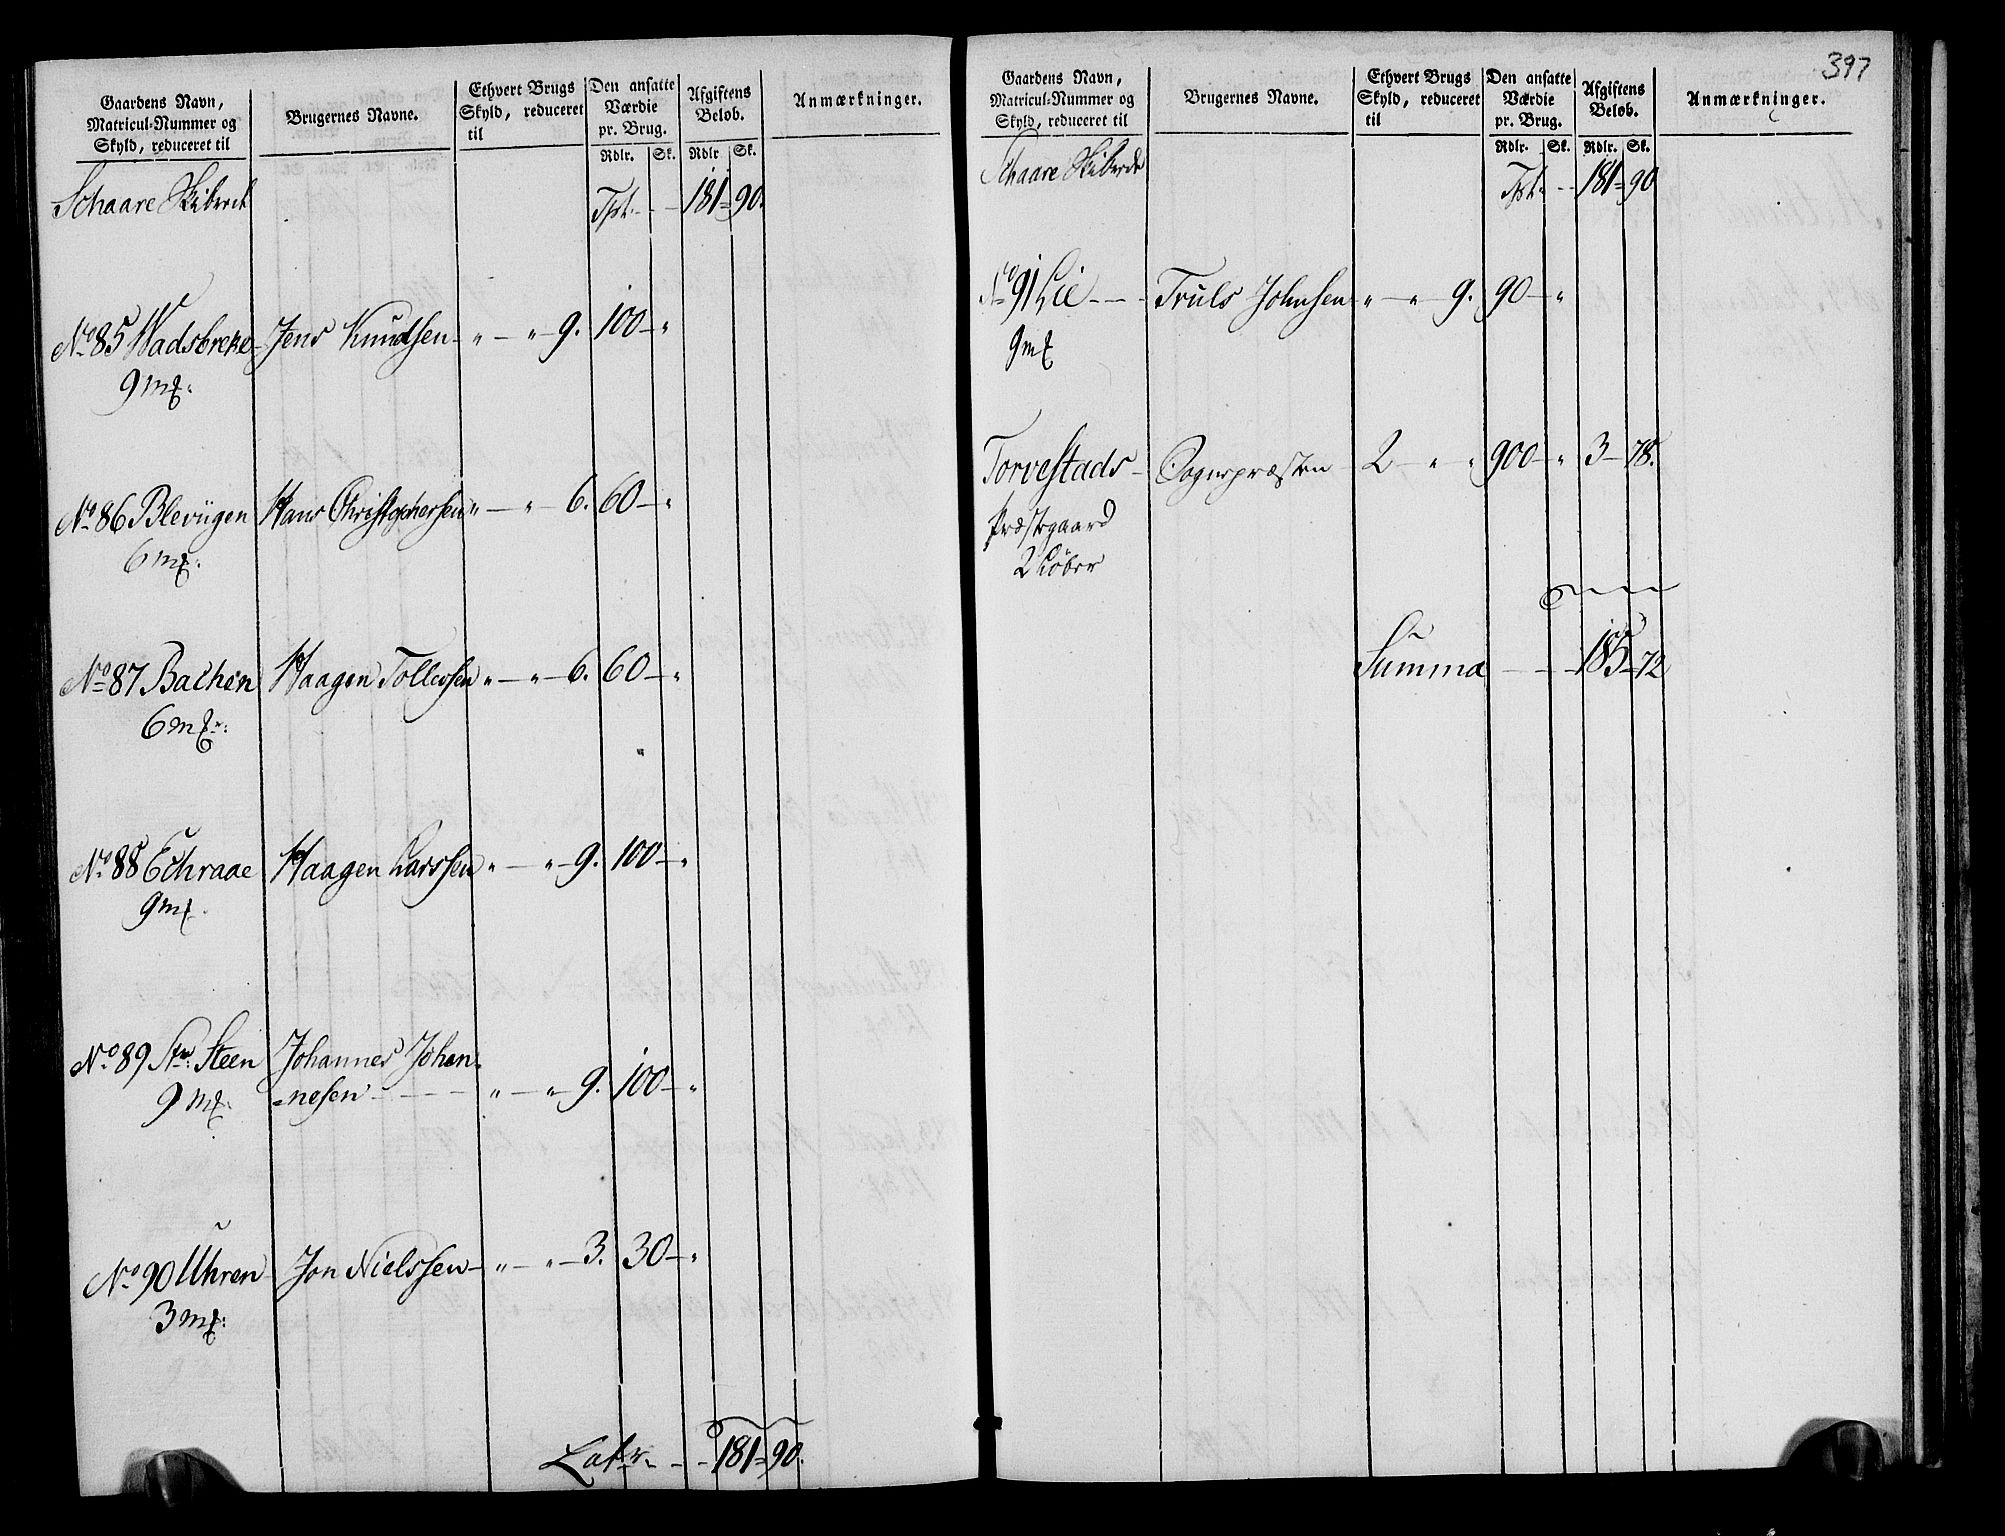 Gaardens Navn, Matricul-Nummer og Skyld, reduceret til
Brugernes Navne.
Ethvert Brugs Skyld, reduceret til
Den ansatte Værdie pr. Brug.
Afgiftens Beløb.
Anmærkninger.
Rdlr. Sk. Rdlr Sk.
Schaare Skibrede Tpt. - - 181 = 90.
No. 85 Wadsbreke - Jens Knudsen - " - " - 9. 100 - "
9 mk.
No. 86 Blevügen Hans Christophersen " - " - 6. 60 - "
6 mk.
No. 87 Bachen Haagen Tollevsen " - " - 6. 60 - "
6 mk.
No. 88 Echraae Haagen Larssen " - " - 9. 100 - "
9 mk.
No. 89 Str. Steen Johannes Johan=
9 mk. =nesen - - - " - " - 9. 100 - "
No. 90 Uhren - Jon Nielssen - " - " - 3. 30 - "
3 mk.
Latr. - - 181 = 90.
397
Gaardens Navn, Matricul-Nummer og Skyld, reduceret til
Brugernes Navne.
Ethvert Brugs Skyld, reduceret til
Den ansatte Værdie pr. Brug.
Afgiftens Beløb.
Anmærkninger.
Rdlr. Sk. Rdlr. Sk.
Schaare Skibrede Tpt. - - 181 = 90
No. 91 Lie - - - Truls Johnsen - " - " - 9. 90 - "
9 mk
Torvestads - Sognepræsten - 2 - " " 900 - " 3 - 78.
Præstegaard
2 Løber
Summa - - - 185 - 72